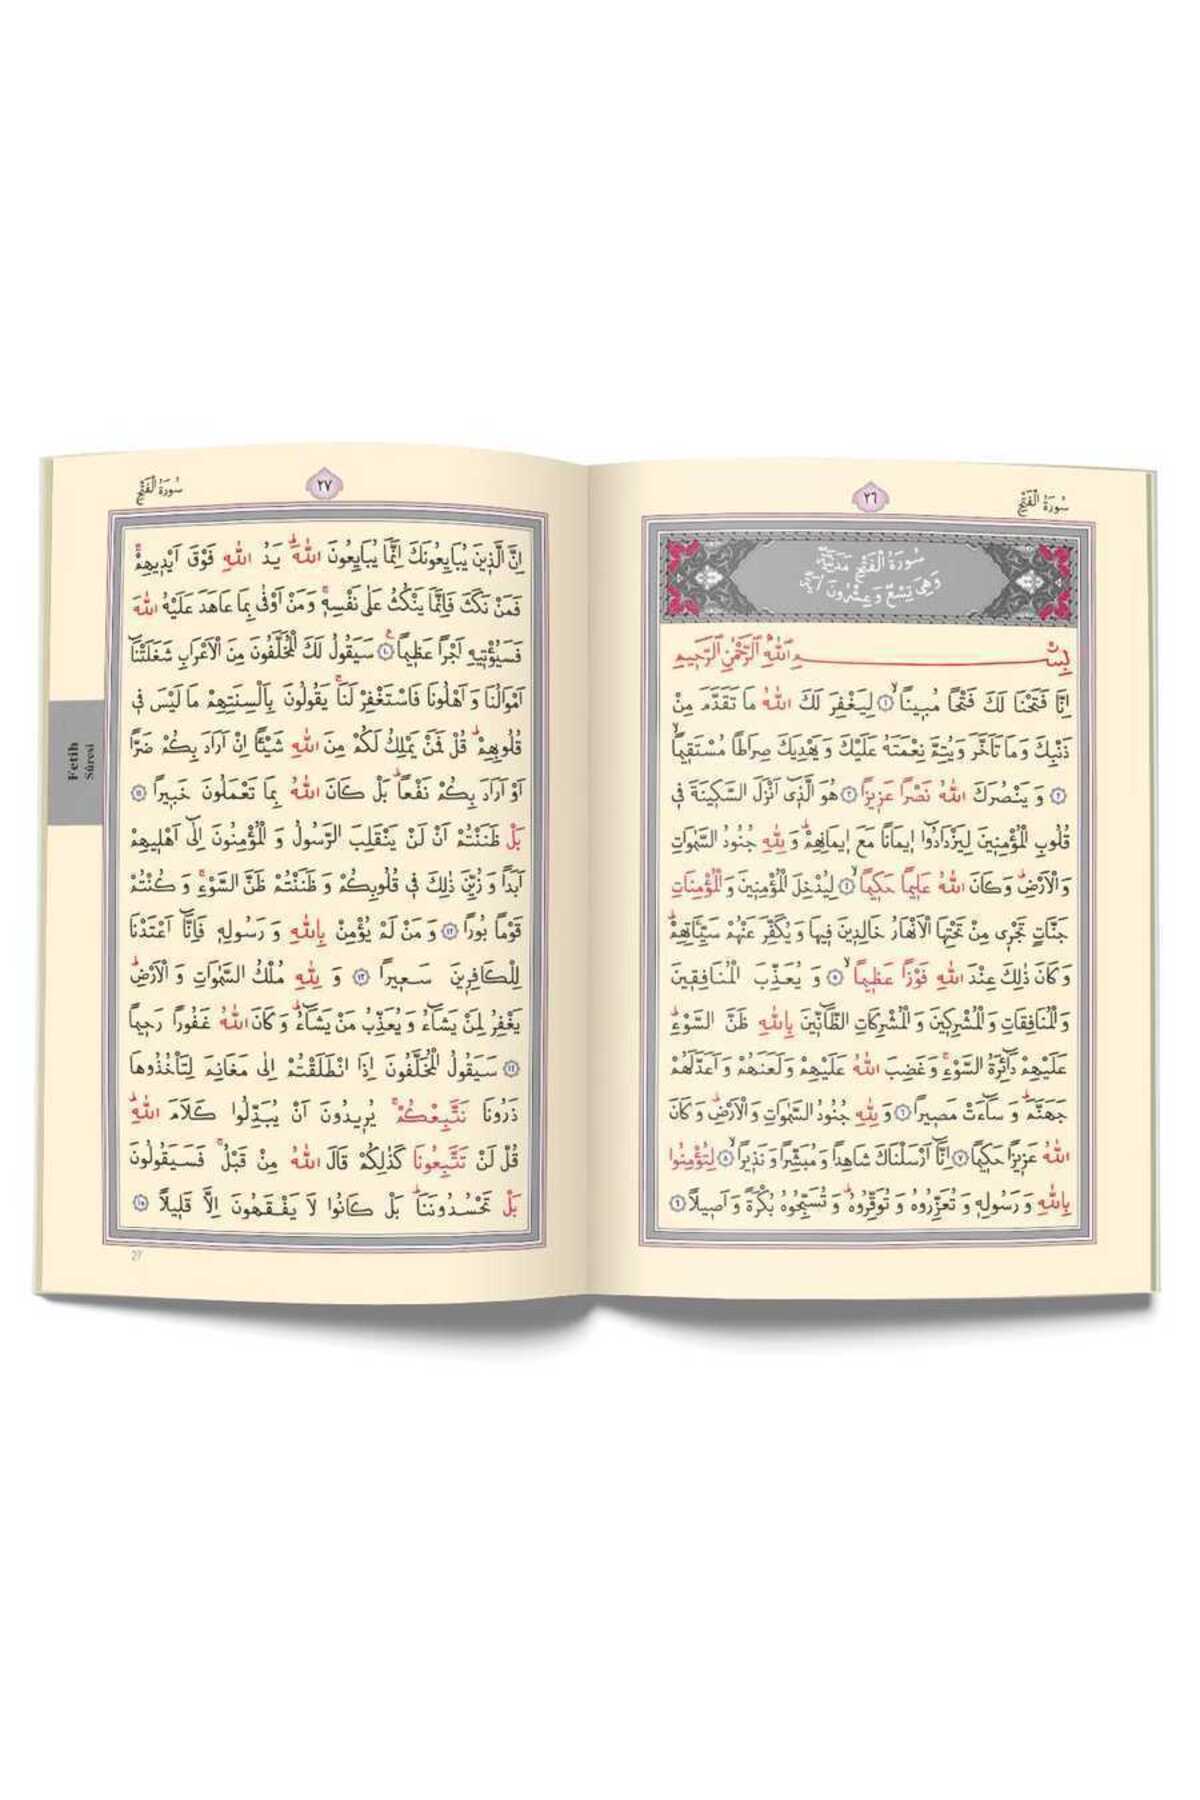 سُورَةُ الْفَتْحِ
٢٦
سُورَةُ الْفَتْحِ مَدَنِيَّةٌ
وَهِيَ تِسْعٌ وَعِشْرُونَ اٰيَةً
بِسْمِ اللّٰهِ الرَّحْمٰنِ الرَّحِيمِ
اِنَّا فَتَحْنَا لَكَ فَتْحًا مُبِينًاۙ ﴿١﴾ لِيَغْفِرَ لَكَ اللّٰهُ مَا تَقَدَّمَ مِنْ
ذَنْبِكَ وَمَا تَاَخَّرَ وَيُتِمَّ نِعْمَتَهُ عَلَيْكَ وَيَهْدِيَكَ صِرَاطًا مُسْتَقِيمًاۙ
﴿٢﴾ وَيَنْصُرَكَ اللّٰهُ نَصْرًا عَزِيزًا ﴿٣﴾ هُوَ الَّذِٓي اَنْزَلَ السَّكِينَةَ فِي
قُلُوبِ الْمُؤْمِنِينَ لِيَزْدَادُٓوا اِيمَانًا مَعَ اِيمَانِهِمْۜ وَلِلّٰهِ جُنُودُ السَّمٰوَاتِ
وَالْاَرْضِۜ وَكَانَ اللّٰهُ عَلِيمًا حَكِيمًا ﴿٤﴾ لِيُدْخِلَ الْمُؤْمِنِينَ وَالْمُؤْمِنَاتِ
جَنَّاتٍ تَجْرِي مِنْ تَحْتِهَا الْاَنْهَارُ خَالِدِينَ فِيهَا وَيُكَفِّرَ عَنْهُمْ سَيِّـَٔاتِهِمْۜ
وَكَانَ ذٰلِكَ عِنْدَ اللّٰهِ فَوْزًا عَظِيمًاۙ ﴿٥﴾ وَيُعَذِّبَ الْمُنَافِقِينَ
وَالْمُنَافِقَاتِ وَالْمُشْرِكِينَ وَالْمُشْرِكَاتِ الظَّٓانِّينَ بِاللّٰهِ ظَنَّ السَّوْءِۜ
عَلَيْهِمْ دَٓائِرَةُ السَّوْءِۚ وَغَضِبَ اللّٰهُ عَلَيْهِمْ وَلَعَنَهُمْ وَاَعَدَّ لَهُمْ
جَهَنَّمَۜ وَسَٓاءَتْ مَصِيرًا ﴿٦﴾ وَلِلّٰهِ جُنُودُ السَّمٰوَاتِ وَالْاَرْضِۜ وَكَانَ
اللّٰهُ عَزِيزًا حَكِيمًا ﴿٧﴾ اِنَّٓا اَرْسَلْنَاكَ شَاهِدًا وَمُبَشِّرًا وَنَذِيرًاۙ ﴿٨﴾ لِتُؤْمِنُوا
بِاللّٰهِ وَرَسُولِهِ وَتُعَزِّرُوهُ وَتُوَقِّرُوهُۜ وَتُسَبِّحُوهُ بُكْرَةً وَاَصِيلًا ﴿٩﴾
سُورَةُ الْفَتْحِ
٢٧
اِنَّ الَّذِينَ يُبَايِعُونَكَ اِنَّمَا يُبَايِعُونَ اللّٰهَۜ يَدُ اللّٰهِ فَوْقَ اَيْدِيهِمْۚ
فَمَنْ نَكَثَ فَاِنَّمَا يَنْكُثُ عَلٰى نَفْسِهِۚ وَمَنْ اَوْفٰى بِمَا عَاهَدَ عَلَيْهُ اللّٰهَ
فَسَيُؤْتِيهِ اَجْرًا عَظِيمًا۟ ﴿١٠﴾ سَيَقُولُ لَكَ الْمُخَلَّفُونَ مِنَ الْاَعْرَابِ شَغَلَتْنَٓا
اَمْوَالُنَا وَاَهْلُونَا فَاسْتَغْفِرْ لَنَاۚ يَقُولُونَ بِاَلْسِنَتِهِمْ مَا لَيْسَ فِي
قُلُوبِهِمْۜ قُلْ فَمَنْ يَمْلِكُ لَكُمْ مِنَ اللّٰهِ شَيْـًٔا اِنْ اَرَادَ بِكُمْ ضَرًّا
اَوْ اَرَادَ بِكُمْ نَفْعًاۜ بَلْ كَانَ اللّٰهُ بِمَا تَعْمَلُونَ خَبِيرًا ﴿١١﴾
بَلْ ظَنَنْتُمْ اَنْ لَنْ يَنْقَلِبَ الرَّسُولُ وَالْمُؤْمِنُونَ اِلٰٓى اَهْلِيهِمْ
اَبَدًا وَزُيِّنَ ذٰلِكَ فِي قُلُوبِكُمْ وَظَنَنْتُمْ ظَنَّ السَّوْءِۚ وَكُنْتُمْ
قَوْمًا بُورًا ﴿١٢﴾ وَمَنْ لَمْ يُؤْمِنْ بِاللّٰهِ وَرَسُولِهِ فَاِنَّٓا اَعْتَدْنَا
لِلْكَافِرِينَ سَعِيرًا ﴿١٣﴾ وَلِلّٰهِ مُلْكُ السَّمٰوَاتِ وَالْاَرْضِۜ
يَغْفِرُ لِمَنْ يَشَٓاءُ وَيُعَذِّبُ مَنْ يَشَٓاءُۜ وَكَانَ اللّٰهُ غَفُورًا رَحِيمًا
﴿١٤﴾ سَيَقُولُ الْمُخَلَّفُونَ اِذَا انْطَلَقْتُمْ اِلٰى مَغَانِمَ لِتَأْخُذُوهَا
ذَرُونَا نَتَّبِعْكُمْۚ يُرِيدُونَ اَنْ يُبَدِّلُوا كَلَامَ اللّٰهِۜ
قُلْ لَنْ تَتَّبِعُونَا كَذٰلِكُمْ قَالَ اللّٰهُ مِنْ قَبْلُۚ فَسَيَقُولُونَ
بَلْ تَحْسُدُونَنَاۜ بَلْ كَانُوا لَا يَفْقَهُونَ اِلَّا قَلِيلًا ﴿١٥﴾
Fetih
Sûresi
27